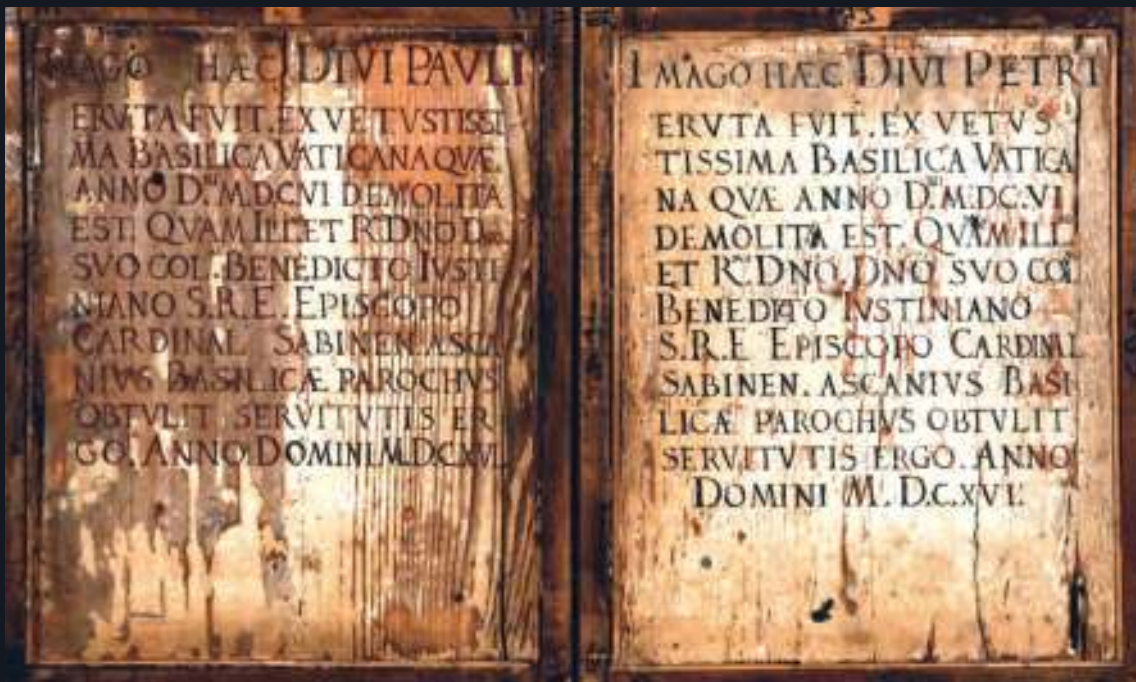 IMAGO HÆC DIVI PAVLI
ERVTA FVIT. EX VETVSTISSI
MA BASILICA VATICANA QVÆ
ANNO D.NI M.DCVI DEMOLITA
EST. QVAM ILL ET R. DNO D
SVO COL. BENEDICTO IVSTI
NIANO S.R.E. EPISCOPO
CARDINAL SABINEN ASCA
NIVS BASILICÆ PAROCHVS
OBTVLIT SERVITVTIS ER
GO. ANNO DOMINI M.D.C.XVI.
IMAGO HÆC DIVI PETRI
ERVTA FVIT. EX VETVS
TISSIMA BASILICA VATICA
NA QVÆ ANNO D.NI M.DC.VI
DEMOLITA EST. QVAM ILL
ET R. DNO. DNO SVO COL
BENEDICTO IVSTINIANO
S.R.E EPISCOPO CARDINAL
SABINEN. ASCANIVS BASI
LICÆ PAROCHVS OBTVLIT
SERVITVTIS ERGO. ANNO
DOMINI M. D.C.XVI.